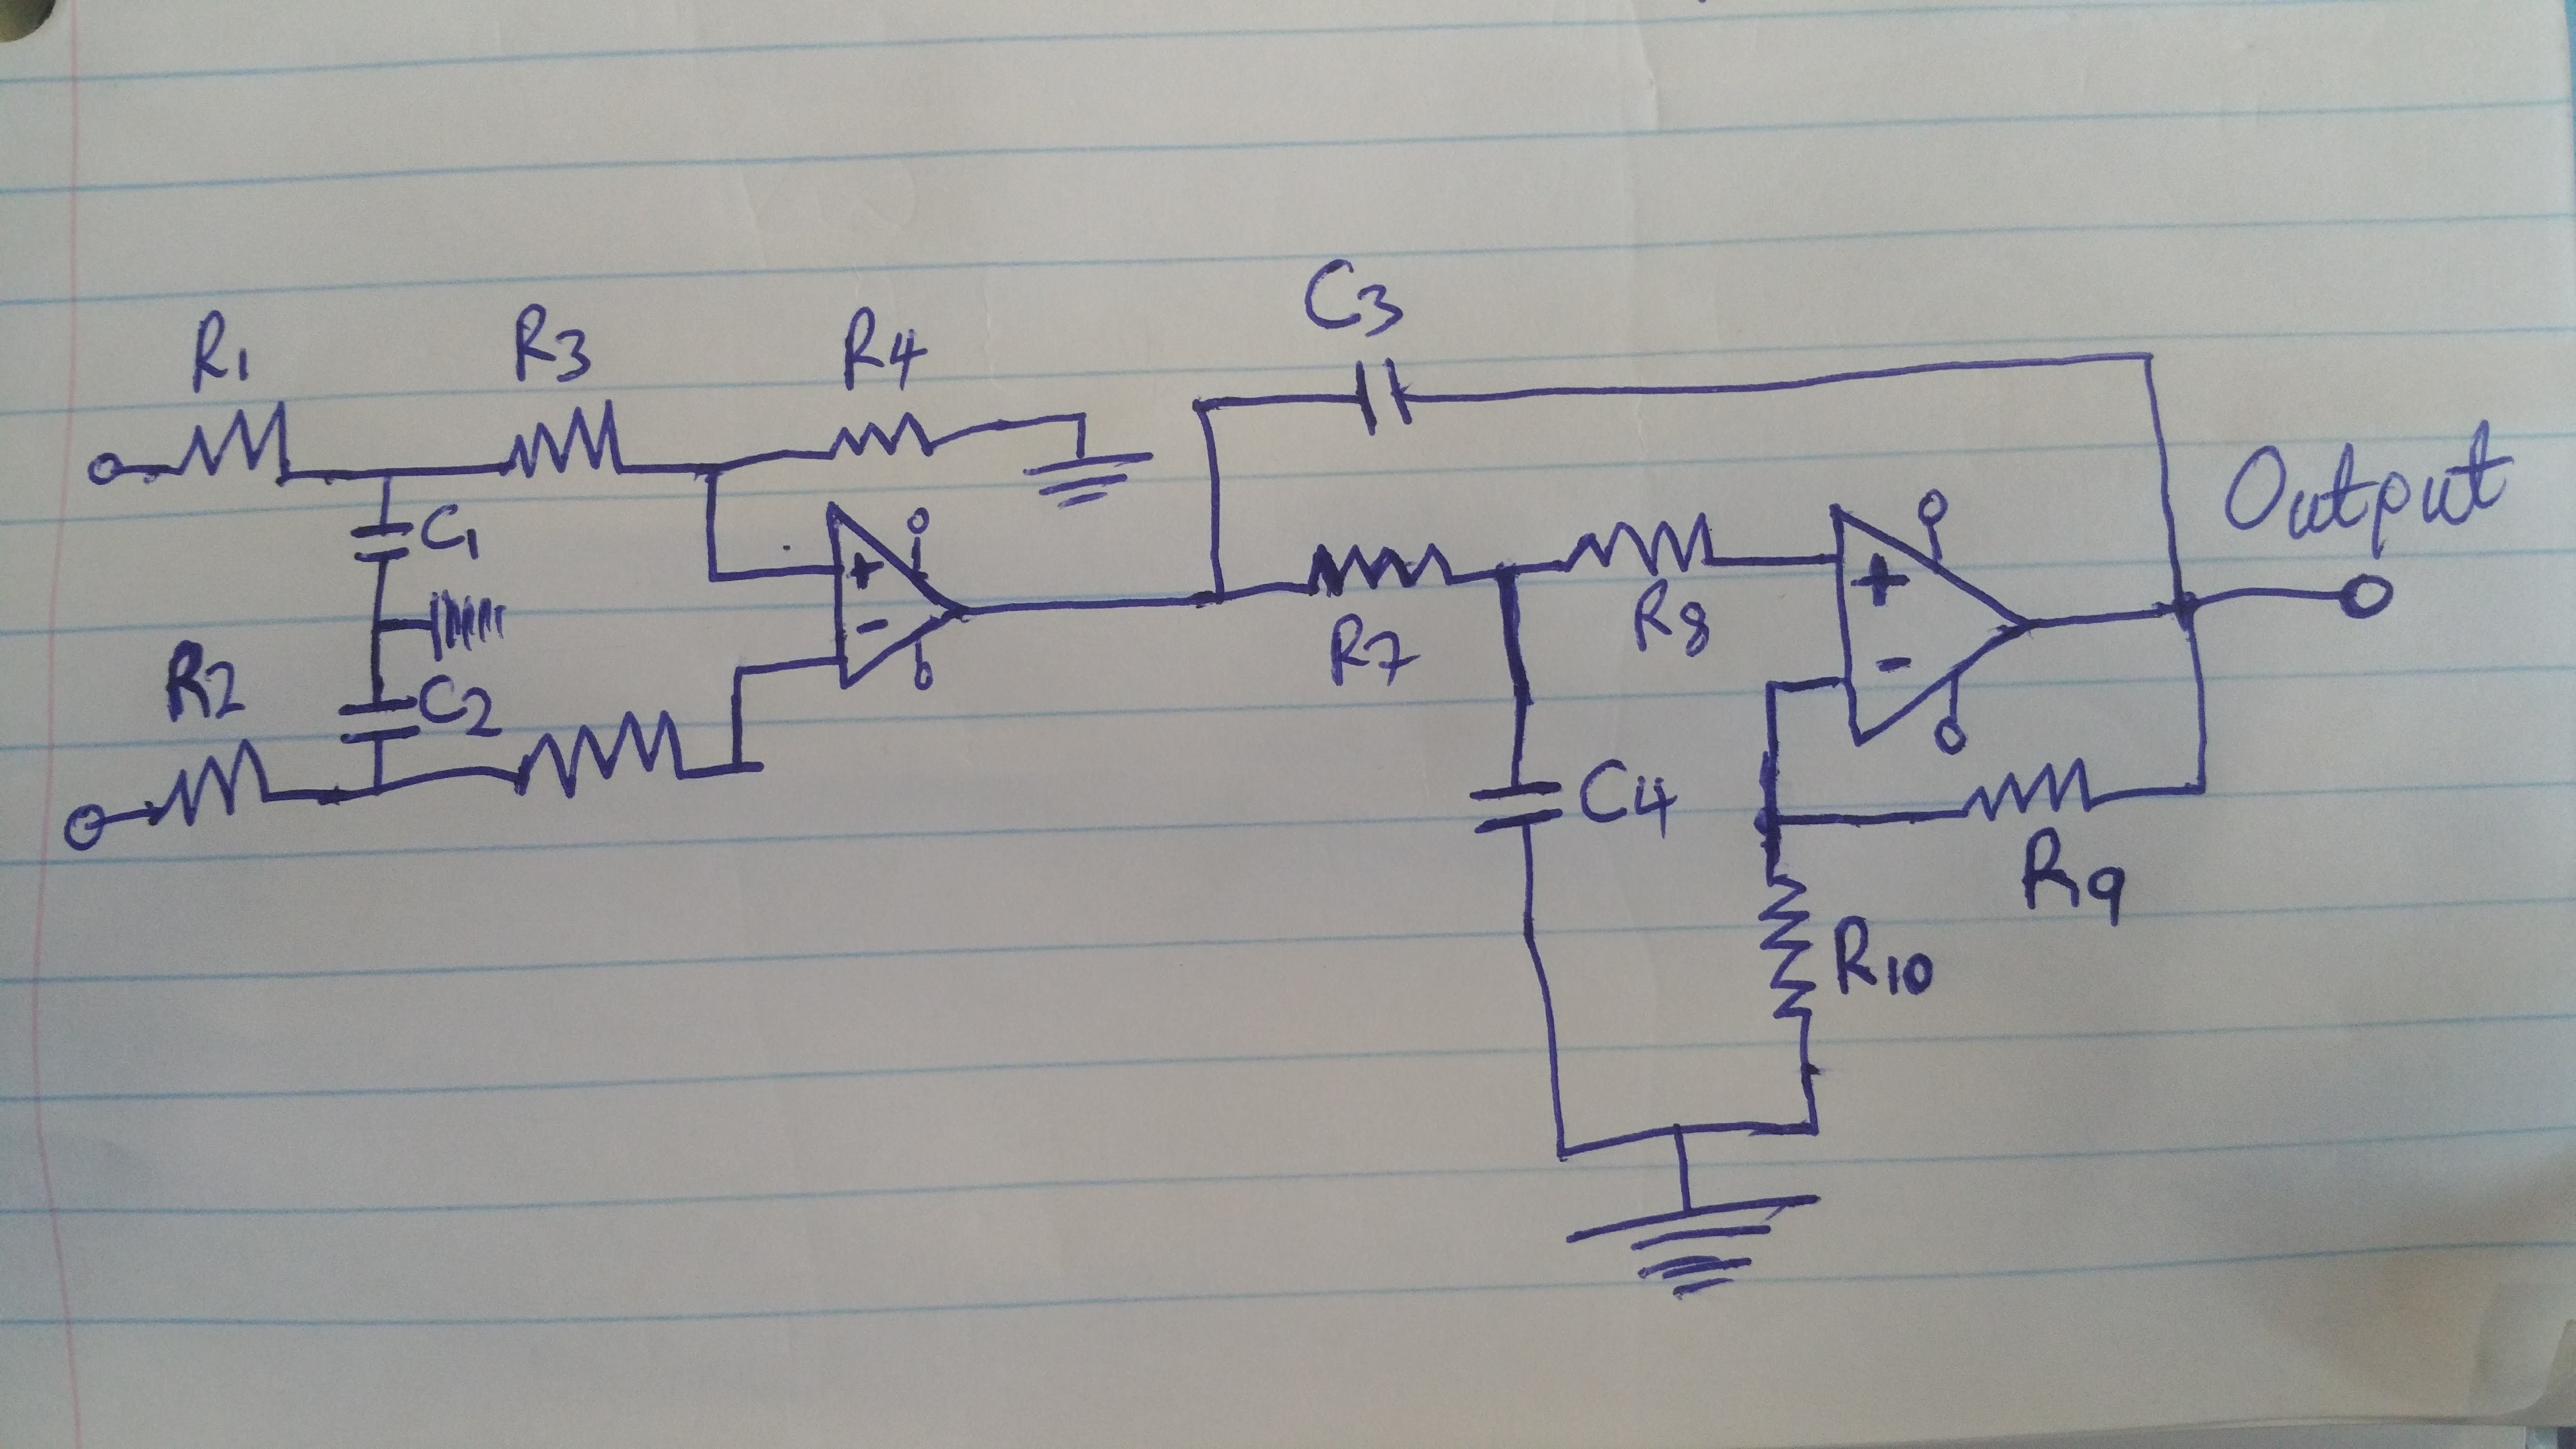 C3
R1
R3
R4
Output
C1
+
-
+
-
R2
C2
R7
R8
C4
R9
R10